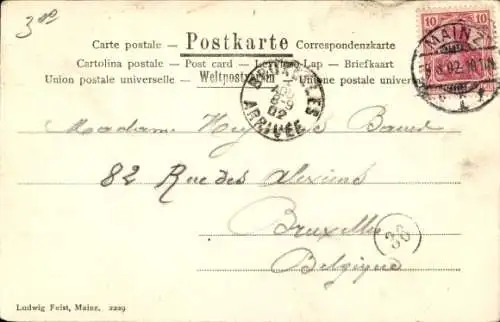 3.00
Carte postale — Postkarte — Correspondenzkarte
Cartolina postale — Post card — Lap — Briefkaart
Union postale universelle — Weltpostverein — Unione postale universale
10 10
MAINZ
8.02.10
BRUXELLES
8-9
02
ARRIVÉE
Madame Bauret
82 Rue des Alexiens
Bruxelles
36
Belgique
Ludwig Feist, Mainz. 2229